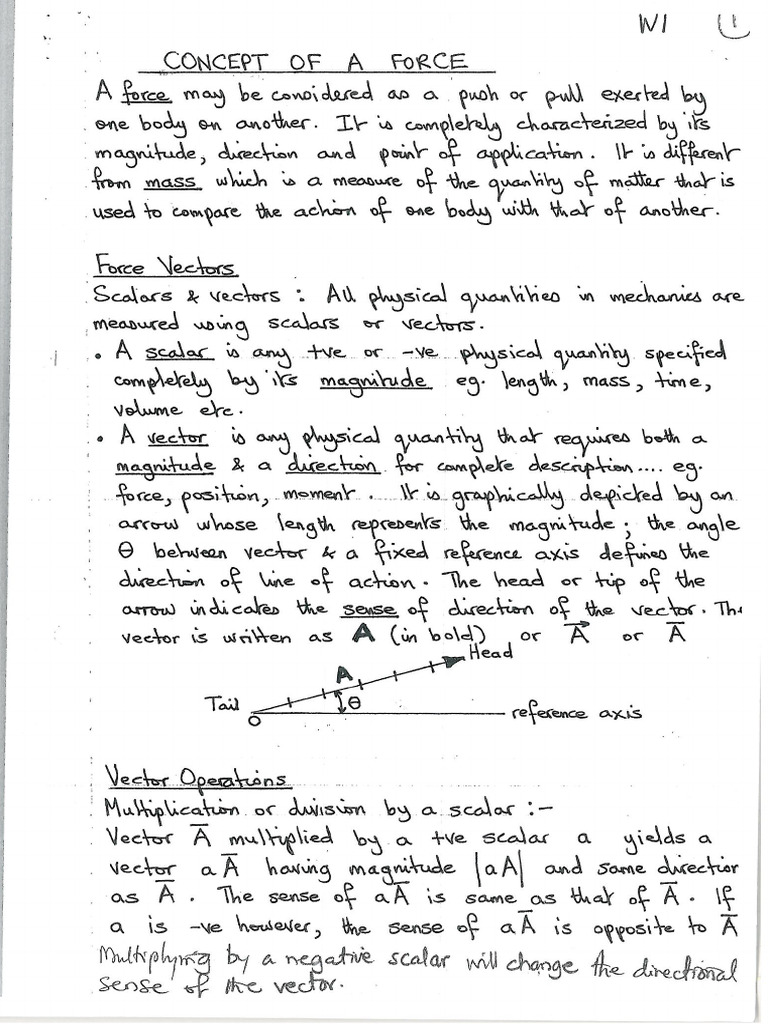 W1 1
CONCEPT OF A FORCE
A force may be considered as a push or pull exerted by
one body on another. It is completely characterized by its
magnitude, direction and point of application. It is different
from mass which is a measure of the quantity of matter that is
used to compare the action of one body with that of another.
Force Vectors
Scalars & vectors : All physical quantities in mechanics are
measured using scalars or vectors.
• A scalar is any +ve or -ve physical quantity specified
completely by its magnitude eg. length, mass, time,
volume etc.
• A vector is any physical quantity that requires both a
magnitude & a direction for complete description.... eg.
force, position, moment. It is graphically depicted by an
arrow whose length represents the magnitude; the angle
θ between vector & a fixed reference axis defines the
direction of line of action. The head or tip of the
arrow indicates the sense of direction of the vector. Th
vector is written as A (in bold) or A⃗ or A̅
Head
A
Tail
θ
O
reference axis
Vector Operations
Multiplication or division by a scalar :-
Vector A̅ multiplied by a +ve scalar a yields a
vector aA̅ having magnitude |aA| and same direction
as A̅. The sense of aA̅ is same as that of A̅. If
a is -ve however, the sense of aA̅ is opposite to A̅
Multiplying by a negative scalar will change the directional
sense of the vector.